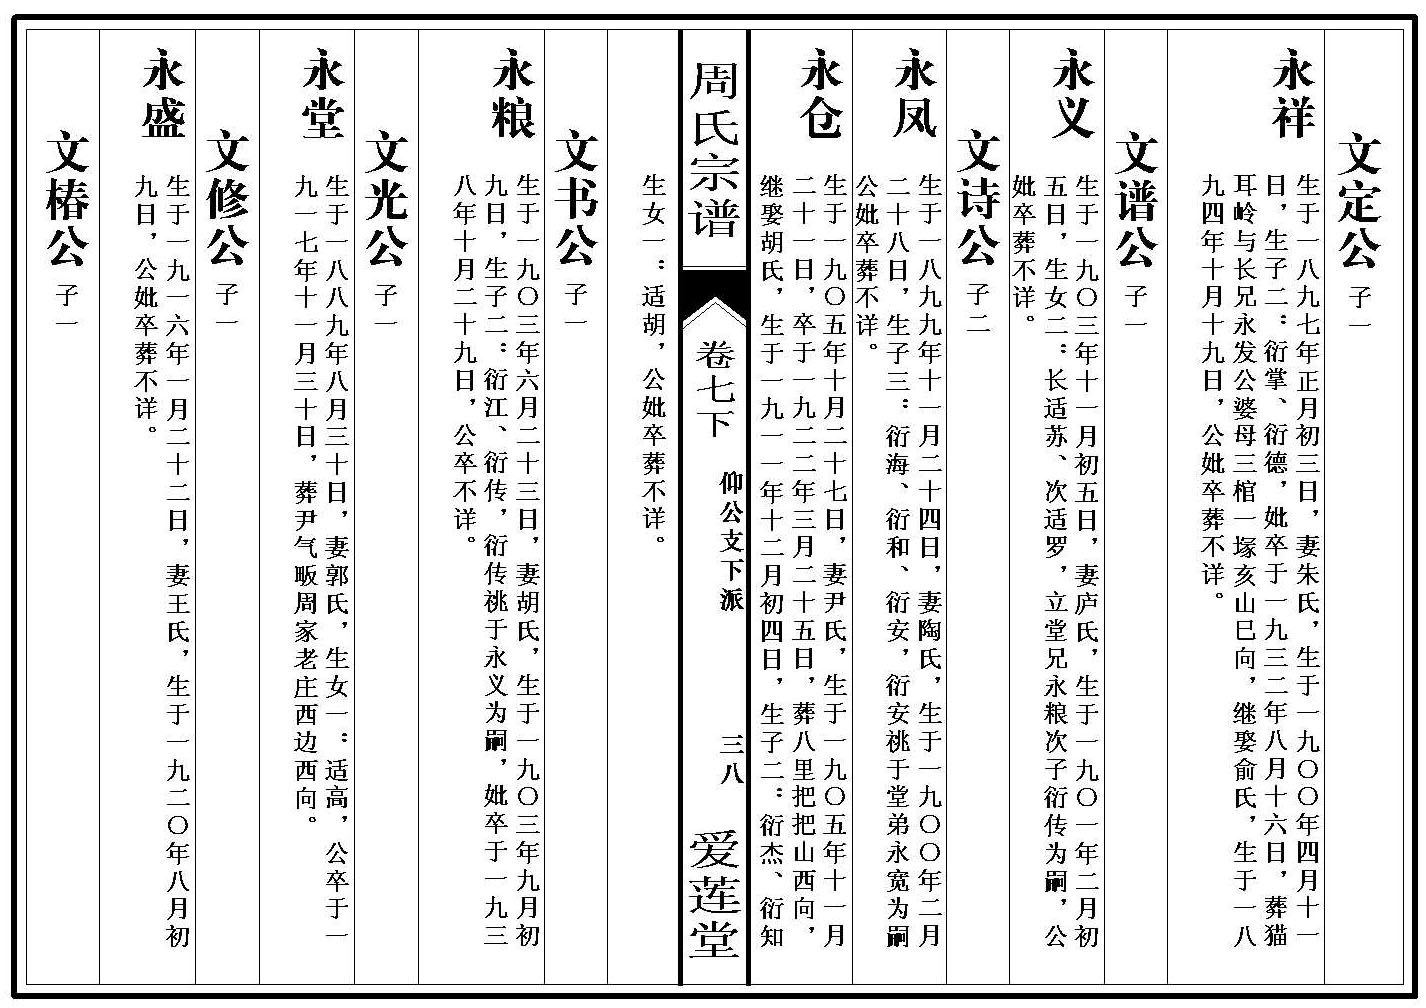 文定公 子一
永祥
生于一八九七年正月初三日，妻朱氏，生于一九〇〇年四月十一
日，生子二：衍掌、衍德，妣卒于一九三二年八月十六日，葬猫
耳岭与长兄永发公婆母三棺一塚亥山巳向，继娶俞氏，生于一八
九四年十月十九日，公妣卒葬不详。
文谱公 子一
永义
生于一九〇三年十一月初五日，妻庐氏，生于一九〇一年二月初
五日，生女二：长适苏、次适罗，立堂兄永粮次子衍传为嗣，公
妣卒葬不详。
文诗公 子二
永凤
生于一八九九年十一月二十四日，妻陶氏，生于一九〇〇年二月
二十八日，生子三：衍海、衍和、衍安，衍安祧于堂弟永宽为嗣
公妣卒葬不详。
永仓
生于一九〇五年十月二十七日，妻尹氏，生于一九〇五年十一月
二十一日，卒于一九二二年三月二十五日，葬八里把把山西向，
继娶胡氏，生于一九一一年十二月初四日，生子二：衍杰、衍知
周氏宗谱
卷七下
仰公支下派
三八
爱莲堂
生女一：适胡，公妣卒葬不详。
文书公 子一
永粮
生于一九〇三年六月二十三日，妻胡氏，生于一九〇三年九月初
九日，生子二：衍江、衍传，衍传祧于永义为嗣，妣卒于一九三
八年十月二十九日，公卒不详。
文光公 子一
永堂
生于一八八九年八月三十日，妻郭氏，生女一：适高，公卒于一
九一七年十一月三十日，葬尹气畈周家老庄西边西向。
文修公 子一
永盛
生于一九一六年一月二十二日，妻王氏，生于一九二〇年八月初
九日，公妣卒葬不详。
文椿公 子一